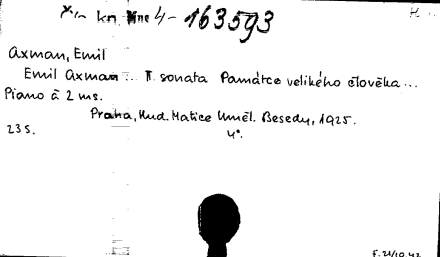 kn 4-163593
H
Axman, Emil
Emil Axman... II. sonata Památce velikého člověka...
Piano à 2 ms.
Praha, Hud. Matice Uměl. Besedy, 1925.
23 s. 4°.